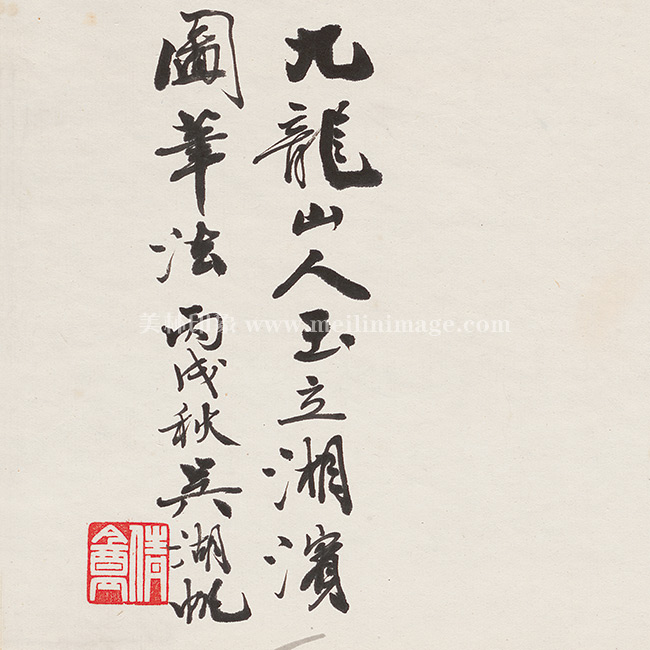 九龍山人玉立湘濱
圖筆法 丙戌秋 吳湖帆
倩盦
美林印象 www.meilinimage.com